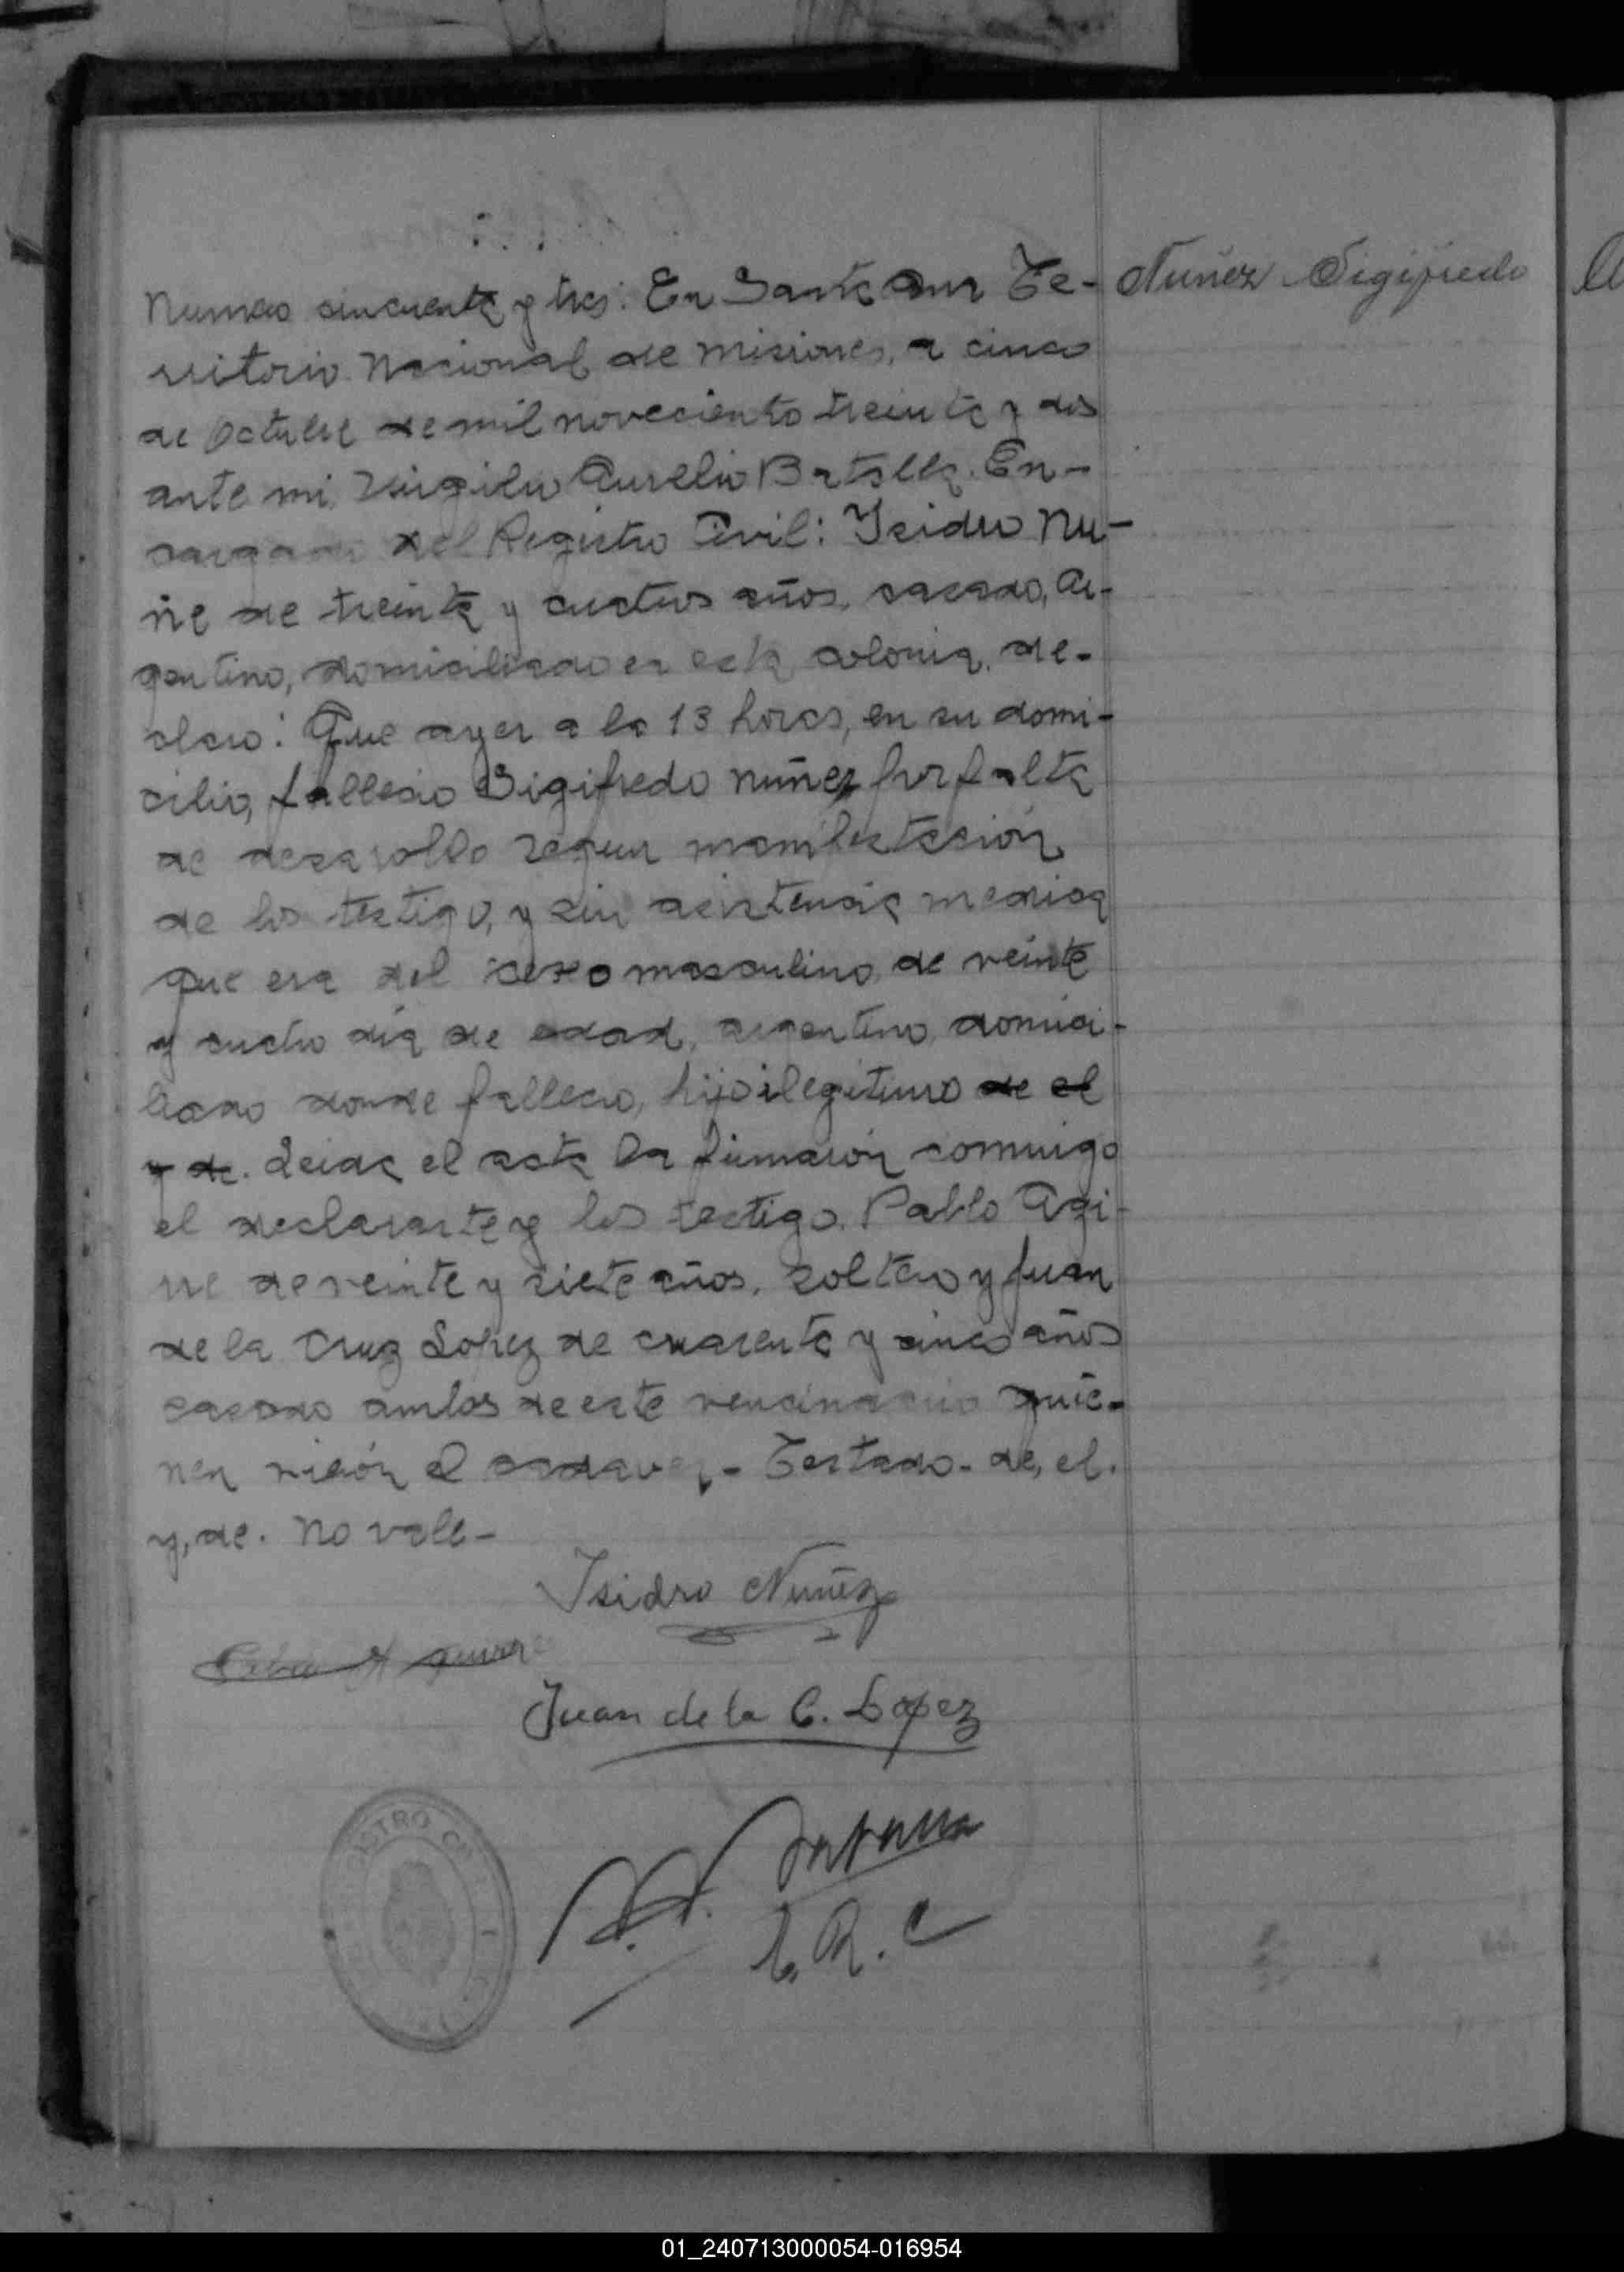 Numero cincuenta y tres: En Santa Ana Te-
Nuñez Sigifredo
rritorio Nacional de Misiones, a cinco
de Octubre de mil noveciento treinta y dos
ante mi, Virgilio Aurelio Batalla. En-
cargado del Registro Civil: Isidro Nu-
ñe de treinta y cuatros años, casado, Ar-
gentino, domiciliado en esta colonia, de-
claro: Que ayer a la 13 horas, en su domi-
cilio, fallecio Sigifredo Nuñez por falta
de desarollo segun manifestación
de los testigo, y sin asistencia medica
que era del sexo masculino, de veinte
y cuatro dia de edad, argentino, domici-
liado donde fallecio, hijo ilegitimo de el
y de. Leida el acta la firmarón conmigo
el declarante y los testigo. Pablo Agi-
rre de veinte y siete años, soltero y Juan
de la Cruz Lopez de cuarenta y cinco años
casado ambos de este vencindario quie-
nen vierón el cadaver - Testado - de, el.
y, de. No vale -
Isidro Nuñez
Juan de la C. López
E. R. C
REGISTRO CIVIL
01_240713000054-016954